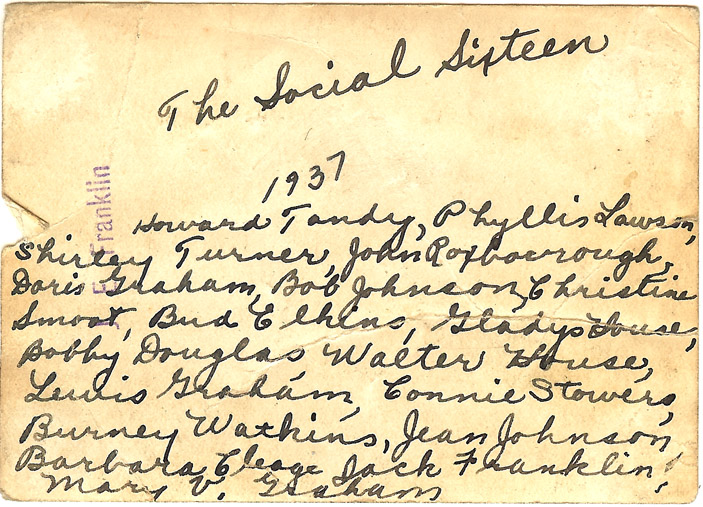 The Social Sixteen
1937
Howard Tandy, Phyllis Lawson,
Shirley Turner, John Roxborough,
Doris Graham, Bob Johnson, Christine
Smoot, Bud Elkins, Gladys House,
Bobby Douglas Walter House,
Lewis Graham, Connie Stowers,
Burney Watkins, Jean Johnson
Barbara Cleage Jack Franklin!
Mary V. Graham
Franklin